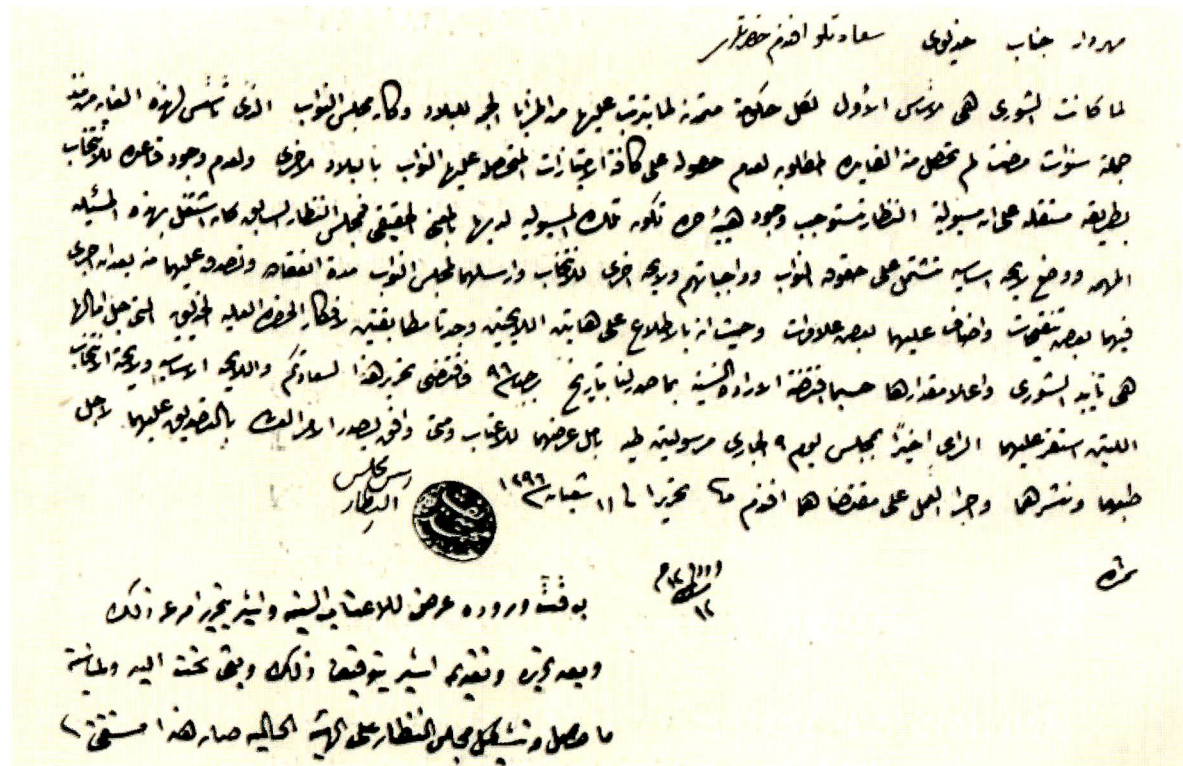 مهردار جناب خديوى سعادتلو افندم حضرتلرى
لما كانت الشورى هى الاساس الأول لكل حكومة متمدنة لما يترتب عليها من المزايا الجمه للبلاد وكان مجلس النواب الذى تأسس لهذه الغايه من منذ
جملة سنوات مضت لم تحصل منه الفايده المطلوبه لعدم حصوله على كافة الامتيازات المتحصله عليها النواب بالبلاد الاخرى ولعدم وجود قاعده للأنتخاب
بطريقه مستقله على ان مسوليه النظار تستوجب وجود هيئة حره تكون تلك المسوليه لديها بالمعنى الحقيقى فمجلس النظار السابق كان اشتغل بهذه المسئله
المهمه ووضع لايحه اساسيه تشتمل على حقوق النواب وواجباتهم ولايحه اخرى للانتخاب وارسلهما لمجلس النواب مدة انعقاده وتصدق عليهما منه بعد ان اجرى
فيهما بعض تنقيحات واضاف عليهما بعض علاوات وحيث انه بالاطلاع على هاتين اللايحتين وجدتا مطابقتين لافكار الحضره العليه الخديويه التى جل امالها
هى تأييد الشورى واعلا مقدارها حسبما اقتضته الاراده السنية بما صدر لنا بتاريخ رجب ٩٦ فاقتضى تحريره هذا لسعادتكم واللايحه الاساسيه ولايحة الانتخاب
اللتين استقر عليهما الراى اخيرًا بمجلس يوم ٩ الجارى مرسولتين طيه باجل عرضهما للاعتاب ومتى وافق يصدر الامر العالى بالتصديق عليهما لاجل
طبعهما ونشرهما واجرا العمل على مقتضاهما افندم تحريرا فى ١١ شعبان ١٢٩٦
رئيس مجلس
النظار
نمره
ورود
١٢
بوقت وروده عرض للاعتاب السنيه واشير بتحرير امر عن ذلك
وبعد تحريره وتقديمه اشير بتوقيف ذلك وبقى تحت اليد ولمناسبة
ما حصل من تشكيل مجلس النظار على الهيئه الحاليه صار هذا مستغنى